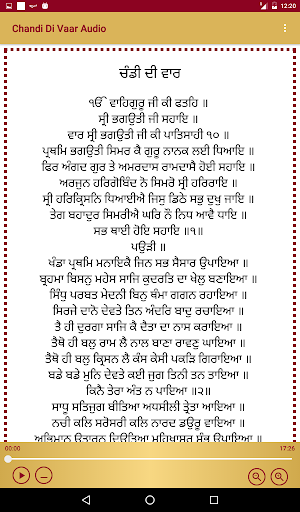 12:20
Chandi Di Vaar Audio
ਚੰਡੀ ਦੀ ਵਾਰ
ੴ ਵਾਹਿਗੁਰੂ ਜੀ ਕੀ ਫਤਹਿ ॥
ਸ੍ਰੀ ਭਗਉਤੀ ਜੀ ਸਹਾਇ ॥
ਵਾਰ ਸ੍ਰੀ ਭਗਉਤੀ ਜੀ ਕੀ ਪਾਤਿਸਾਹੀ ੧੦ ॥
ਪ੍ਰਥਮਿ ਭਗਉਤੀ ਸਿਮਰ ਕੈ ਗੁਰੂ ਨਾਨਕ ਲਈ ਧਿਆਇ ॥
ਫਿਰ ਅੰਗਦ ਗੁਰ ਤੇ ਅਮਰਦਾਸ ਰਾਮਦਾਸੈ ਹੋਈ ਸਹਾਇ ॥
ਅਰਜੁਨ ਹਰਿਗੋਬਿੰਦ ਨੋ ਸਿਮਰੋ ਸ੍ਰੀ ਹਰਿਰਾਇ ॥
ਸ੍ਰੀ ਹਰਿਕ੍ਰਿਸਨਿ ਧਿਆਈਐ ਜਿਸੁ ਡਿਠੇ ਸਭੁ ਦੁਖੁ ਜਾਇ ॥
ਤੇਗ ਬਹਾਦੁਰ ਸਿਮਰੀਐ ਘਰਿ ਨੌ ਨਿਧਿ ਆਵੈ ਧਾਇ ॥
ਸਭ ਥਾਈ ਹੋਇ ਸਹਾਇ ॥੧॥
ਪਉੜੀ ॥
ਖੰਡਾ ਪ੍ਰਥਮਿ ਮਨਾਇਕੈ ਜਿਨ ਸਭ ਸੈਸਾਰ ਉਪਾਇਆ ॥
ਬ੍ਰਹਮਾ ਬਿਸਨੁ ਮਹੇਸ ਸਾਜਿ ਕੁਦਰਤਿ ਦਾ ਖੇਲੁ ਬਣਾਇਆ ॥
ਸਿੰਧੁ ਪਰਬਤ ਮੇਦਨੀ ਬਿਨੁ ਥੰਮਾ ਗਗਨ ਰਹਾਇਆ ॥
ਸਿਰਜੇ ਦਾਨੋ ਦੇਵਤੇ ਤਿਨ ਅੰਦਰਿ ਬਾਦੁ ਰਚਾਇਆ ॥
ਤੈ ਹੀ ਦੁਰਗਾ ਸਾਜਿ ਕੈ ਦੈਤਾ ਦਾ ਨਾਸ ਕਰਾਇਆ ॥
ਤੈਥੋ ਹੀ ਬਲੁ ਰਾਮ ਲੈ ਨਾਲ ਬਾਣਾ ਰਾਵਣੁ ਘਾਇਆ ॥
ਤੈਥੋ ਹੀ ਬਲੁ ਕ੍ਰਿਸਨ ਲੈ ਕੰਸ ਕੇਸੀ ਪਕੜਿ ਗਿਰਾਇਆ ॥
ਬਡੇ ਬਡੇ ਮੁਨਿ ਦੇਵਤੇ ਕਈ ਜੁਗ ਤਿਨੀ ਤਨ ਤਾਇਆ ॥
ਕਿਨੈ ਤੇਰਾ ਅੰਤ ਨ ਪਾਇਆ ॥੨॥
ਸਾਧੂ ਸਤਿਜੁਗ ਬੀਤਿਆ ਅਧਸੀਲੀ ਤ੍ਰੇਤਾ ਆਇਆ ॥
ਨਚੀ ਕਲਿ ਸਰੋਸਰੀ ਕਲਿ ਨਾਰਦ ਡਉਰੂ ਵਾਇਆ ॥
ਅਭਿਮਾਨ ਉਤਾਰਨ ਦਿਉਤਿਆ ਮਹਿਖਾਸੁਰ ਸੁੰਭ ਉਪਾਇਆ ॥
00:00 17:26